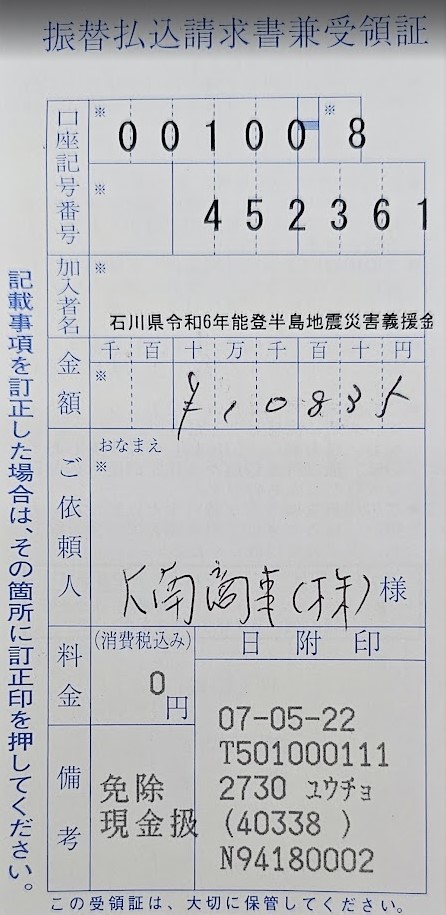 振替払込請求書兼受領証
口座記号番号
※ 00100 ※ 8
※ 452361
加入者名
※
石川県令和6年能登半島地震災害義援金
金額
千 百 十 万 千 百 十 円
※ ¥10835
ご依頼人
おなまえ
※
大南商事(株)様
料金
(消費税込み)
0円
備考
免除
現金扱
日附印
07-05-22
T501000111
2730 ユウチョ
(40338 )
N94180002
記載事項を訂正した場合は、その箇所に訂正印を押してください。
この受領証は、大切に保管してください。